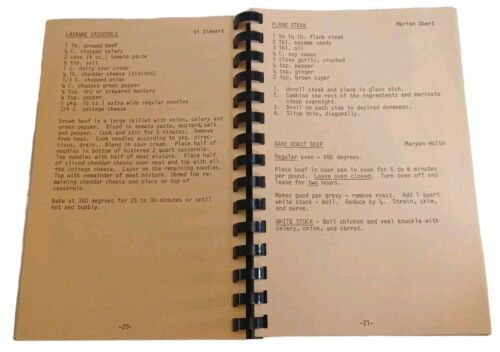 LASAGNE CASSEROLE
Vi Stewart
1 lb. ground beef
¼ C. chopped celery
2 cans (6 oz.) tomato paste
½ tsp. salt
1 C. dairy sour cream
½ lb. cheddar cheese (divided)
1/3 C. chopped onion
¼ C. chopped green pepper
½ tsp. dry or prepared mustard
½ tsp. pepper
1 pkg. (8 oz.) extra wide regular noodles
3/4 C. cottage cheese
Brown beef in a large skillet with onion, celery and
green pepper. Blend in tomato paste, mustard, salt
and pepper. Cook and stir for 5 minutes. Remove
from heat. Cook noodles according to pkg. direc-
tions, drain. Blend in sour cream. Place half of
noodles in bottom of buttered 2 quart casserole.
Top noodles with half of meat mixture. Place half
of sliced cheddar cheese over meat and top with all
the cottage cheese. Layer on the remaining noodles.
Top with remainder of meat mixture. Shred the re-
maining cheddar cheese and place on top of
casserole.
Bake at 350 degrees for 25 to 30 minutes or until
hot and bubbly.
-20-
FLANK STEAK
Marian Obert
1 to 1½ lb. flank steak
2 Tbl. sesame seeds
3 Tbl. oil
¼ C. soy sauce
1 clove garlic, crushed
¼ tsp. pepper
¼ tsp. ginger
2 tsp. brown sugar
1. Unroll steak and place in glass dish.
2. Combine the rest of the ingredients and marinate
steak overnight.
3. Broil on each side to desired doneness.
4. Slice thin, diagonally.
RARE ROAST BEEF
Maryan Holte
Regular oven - 500 degrees.
Place beef in open pan in oven for 5 to 6 minutes
per pound. Leave oven closed. Turn oven off and
leave for two hours.
Makes good pan gravy - remove roast. Add 1 quart
white stock - boil. Reduce by ½. Strain, skim,
and serve.
WHITE STOCK - Boil chicken and veal knuckle with
celery, onion, and carrot.
-21-